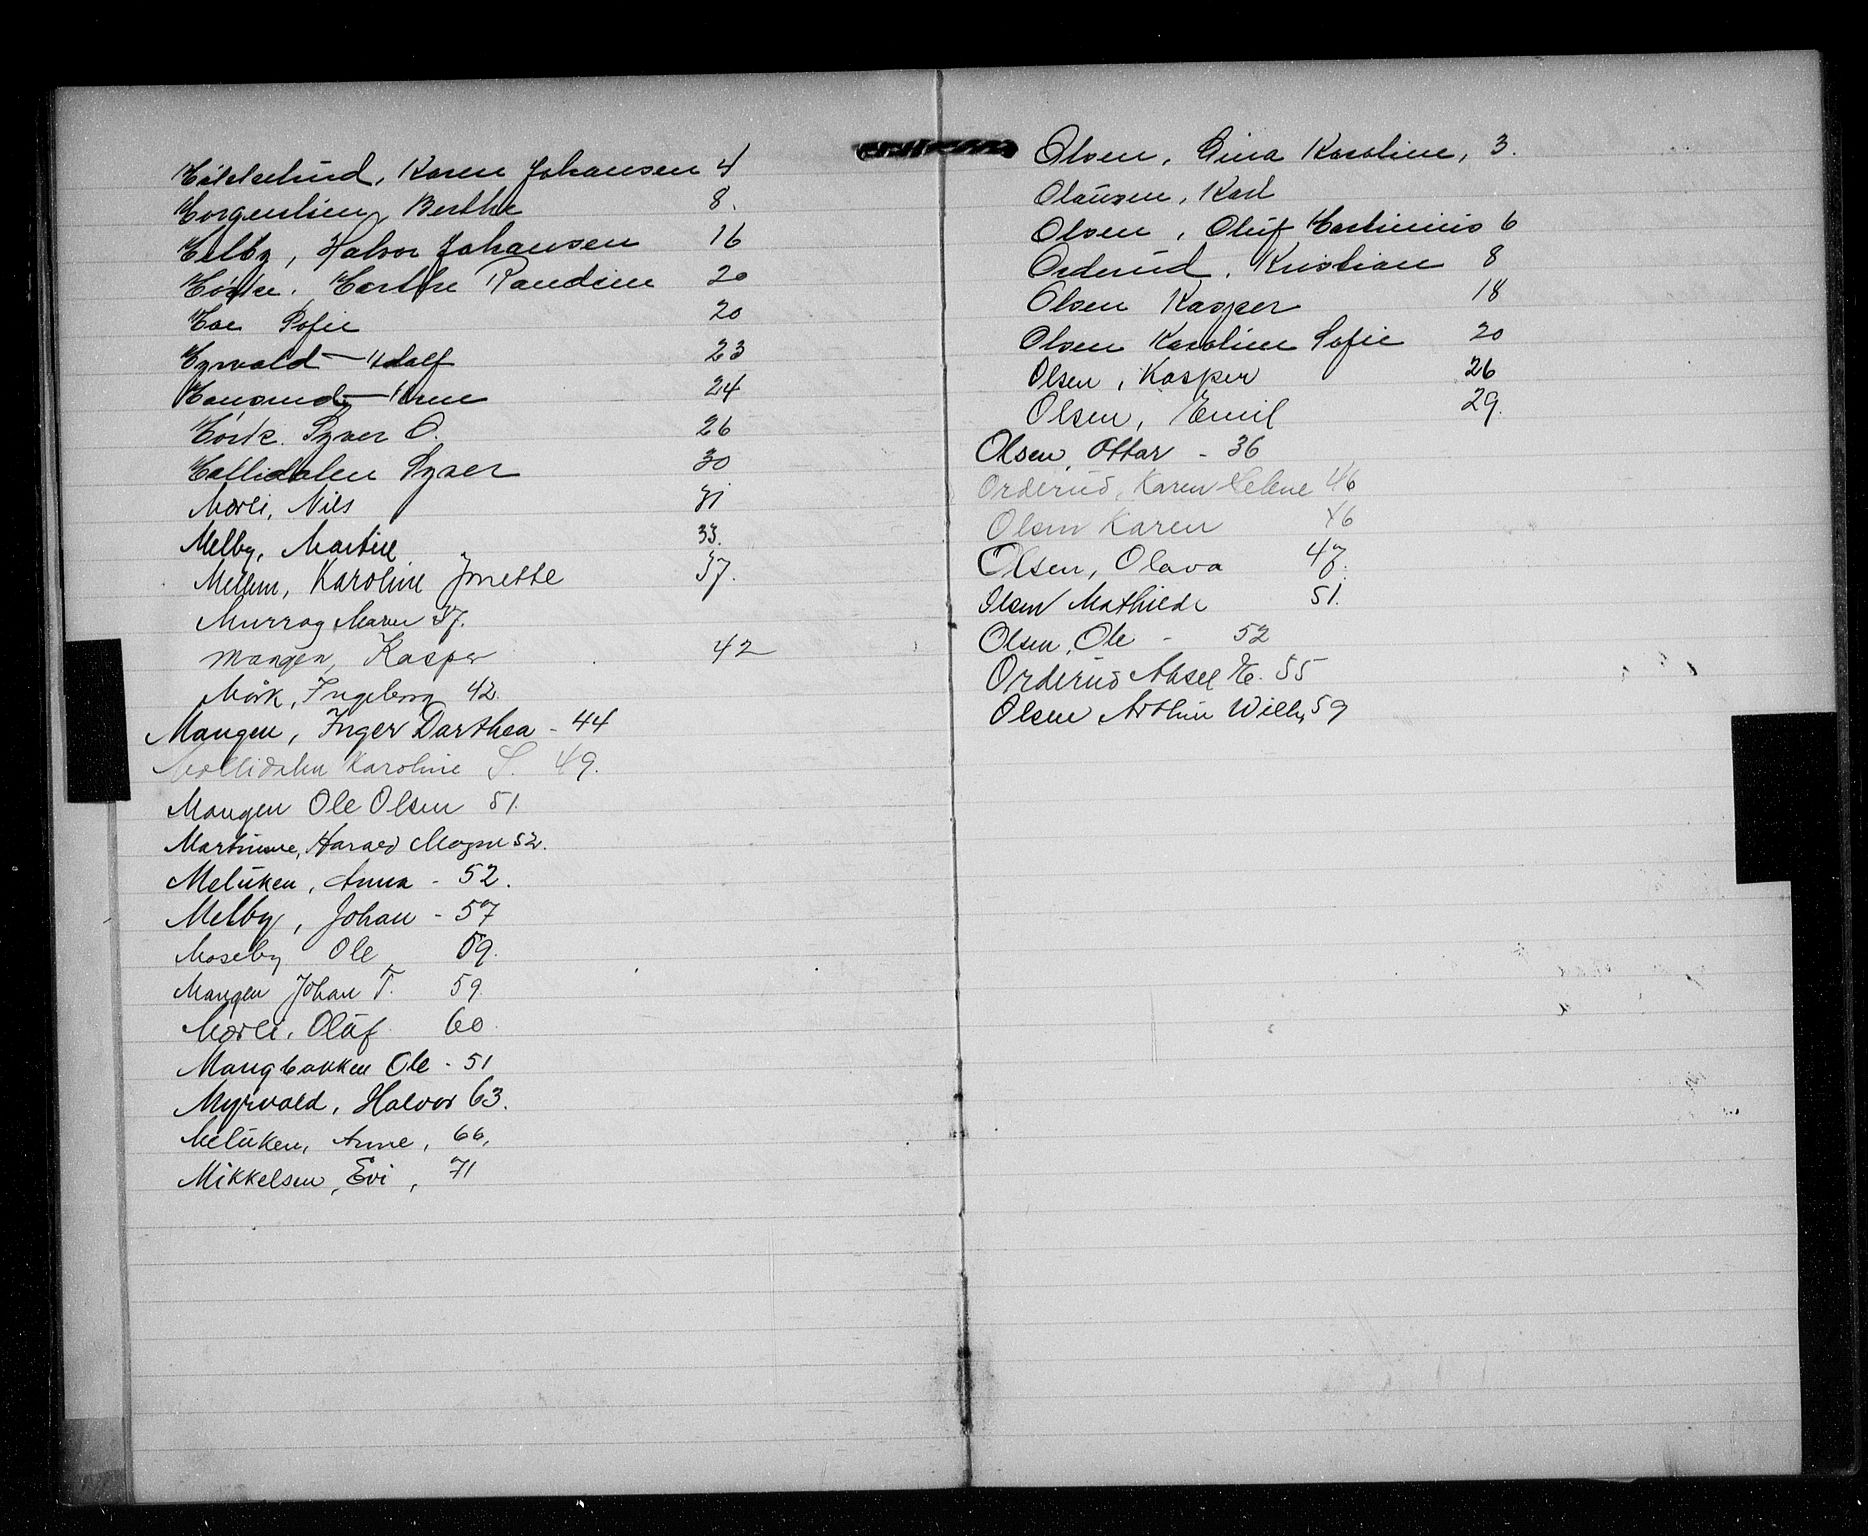 Karen Johansen 4
Morgenstien, Berthe 8.
Melby, Halvor Johansen 16
Mörk, Marthe Randine 20
Moe Sofie 20
Myrvald Adolf 23
Arne 24
Mörk. Syver O. 26
Mollidalen Syver 30
Mørli, Nils 31
Melby, Martin 33.
Mellem, Karoline Jonette 37.
Murray Maren 37.
Mangen, Kasper 42
Mörk, Ingeborg 42.
Mangen, Inger Darthea - 44
Mollidalen Karoline S. 49.
Mangen Ole Olsen 51.
Martinsen, Harald Magne 52.
Meluken, Anna - 52.
Melby, Johan - 57
Moseby Ole 59.
Mangen Johan T. 59.
Mørli, Oluf 60.
Mangbakken Ole - 51
Myrvold, Halvor 63.
Meluken, Anne, 66,
Mikkelsen, Evi, 71
Olsen, Gina Karoline, 3.
Olausen, Karl
Olsen, Oluf Martinius 6
Orderud, Kristian 8
Olsen Kasper 18
Olsen Karoline Sofie 20
Olsen, Kasper 26
Olsen, Emil 29.
Olsen, Ottar - 36
Orderud, Karen Helene 46
Olsen Karen 46
Olsen, Olava 47.
Olsen Mathilde 51.
Olsen, Ole - 52
Orderud Aksel M. 55
Olsen Arthur Willy 59